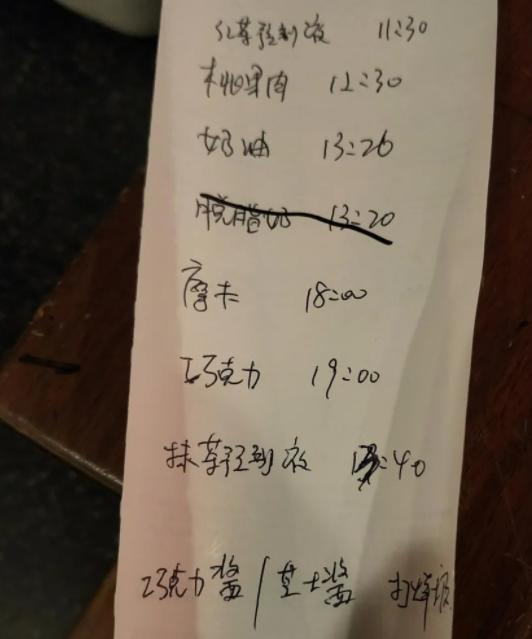 红茶预制液 11:30
桃果肉 12:30
奶油 13:26
脱脂奶 13:20
摩卡 18:00
巧克力 19:00
抹茶预制液 :40
巧克力酱/芝士酱 打烊